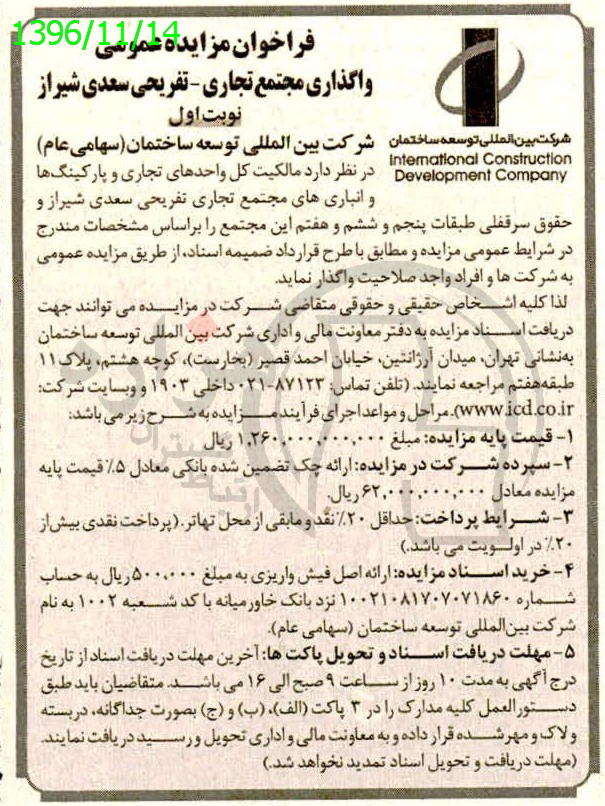 1396/11/14
فراخوان مزایده عمومی
واگذاری مجتمع تجاری - تفریحی سعدی شیراز
نوبت اول
شرکت بین‌المللی توسعه ساختمان
International Construction
Development Company
شرکت بین المللی توسعه ساختمان (سهامی عام)
در نظر دارد مالکیت کل واحدهای تجاری و پارکینگ‌ها
و انباری های مجتمع تجاری تفریحی سعدی شیراز و
حقوق سرقفلی طبقات پنجم و ششم و هفتم این مجتمع را براساس مشخصات مندرج
در شرایط عمومی مزایده و مطابق با طرح قرارداد ضمیمه اسناد، از طریق مزایده عمومی
به شرکت ها و افراد واجد صلاحیت واگذار نماید.
لذا کلیه اشخاص حقیقی و حقوقی متقاضی شرکت در مزایده می توانند جهت
دریافت اسناد مزایده به دفتر معاونت مالی و اداری شرکت بین المللی توسعه ساختمان
به‌نشانی تهران، میدان آرژانتین، خیابان احمد قصیر (بخارست)، کوچه هشتم، پلاک ۱۱
طبقه‌هفتم مراجعه نمایند. (تلفن تماس: ۸۷۱۲۳-۰۲۱ داخلی ۱۹۰۳ و وبسایت شرکت:
www.icd.co.ir). مراحل و مواعد اجرای فرآیند مزایده به شرح زیر می باشد:
۱- قیمت پایه مزایده: مبلغ ۱,۲۶۰,۰۰۰,۰۰۰,۰۰۰ ریال
۲- سپرده شرکت در مزایده: ارائه چک تضمین شده بانکی معادل ۵٪ قیمت پایه
مزایده معادل ۶۲,۰۰۰,۰۰۰,۰۰۰ ریال.
۳- شرایط پرداخت: حداقل ۲۰٪ نقد و مابقی از محل تهاتر. (پرداخت نقدی بیش از
۲۰٪ در اولویت می باشد.)
۴- خرید اسناد مزایده: ارائه اصل فیش واریزی به مبلغ ۵۰۰,۰۰۰ ریال به حساب
شماره ۱۰۰۲۱۰۸۱۷۰۷۰۷۱۸۶۰ نزد بانک خاورمیانه با کد شعبه ۱۰۰۲ به نام
شرکت بین‌المللی توسعه ساختمان (سهامی عام).
۵- مهلت دریافت اسناد و تحویل پاکت ها: آخرین مهلت دریافت اسناد از تاریخ
درج آگهی به مدت ۱۰ روز از ساعت ۹ صبح الی ۱۶ می باشد. متقاضیان باید طبق
دستورالعمل کلیه مدارک را در ۳ پاکت (الف)، (ب) و (ج) بصورت جداگانه، دربسته
و لاک و مهر شده قرار داده و به معاونت مالی و اداری تحویل و رسید دریافت نمایند.
(مهلت دریافت و تحویل اسناد تمدید نخواهد شد.)